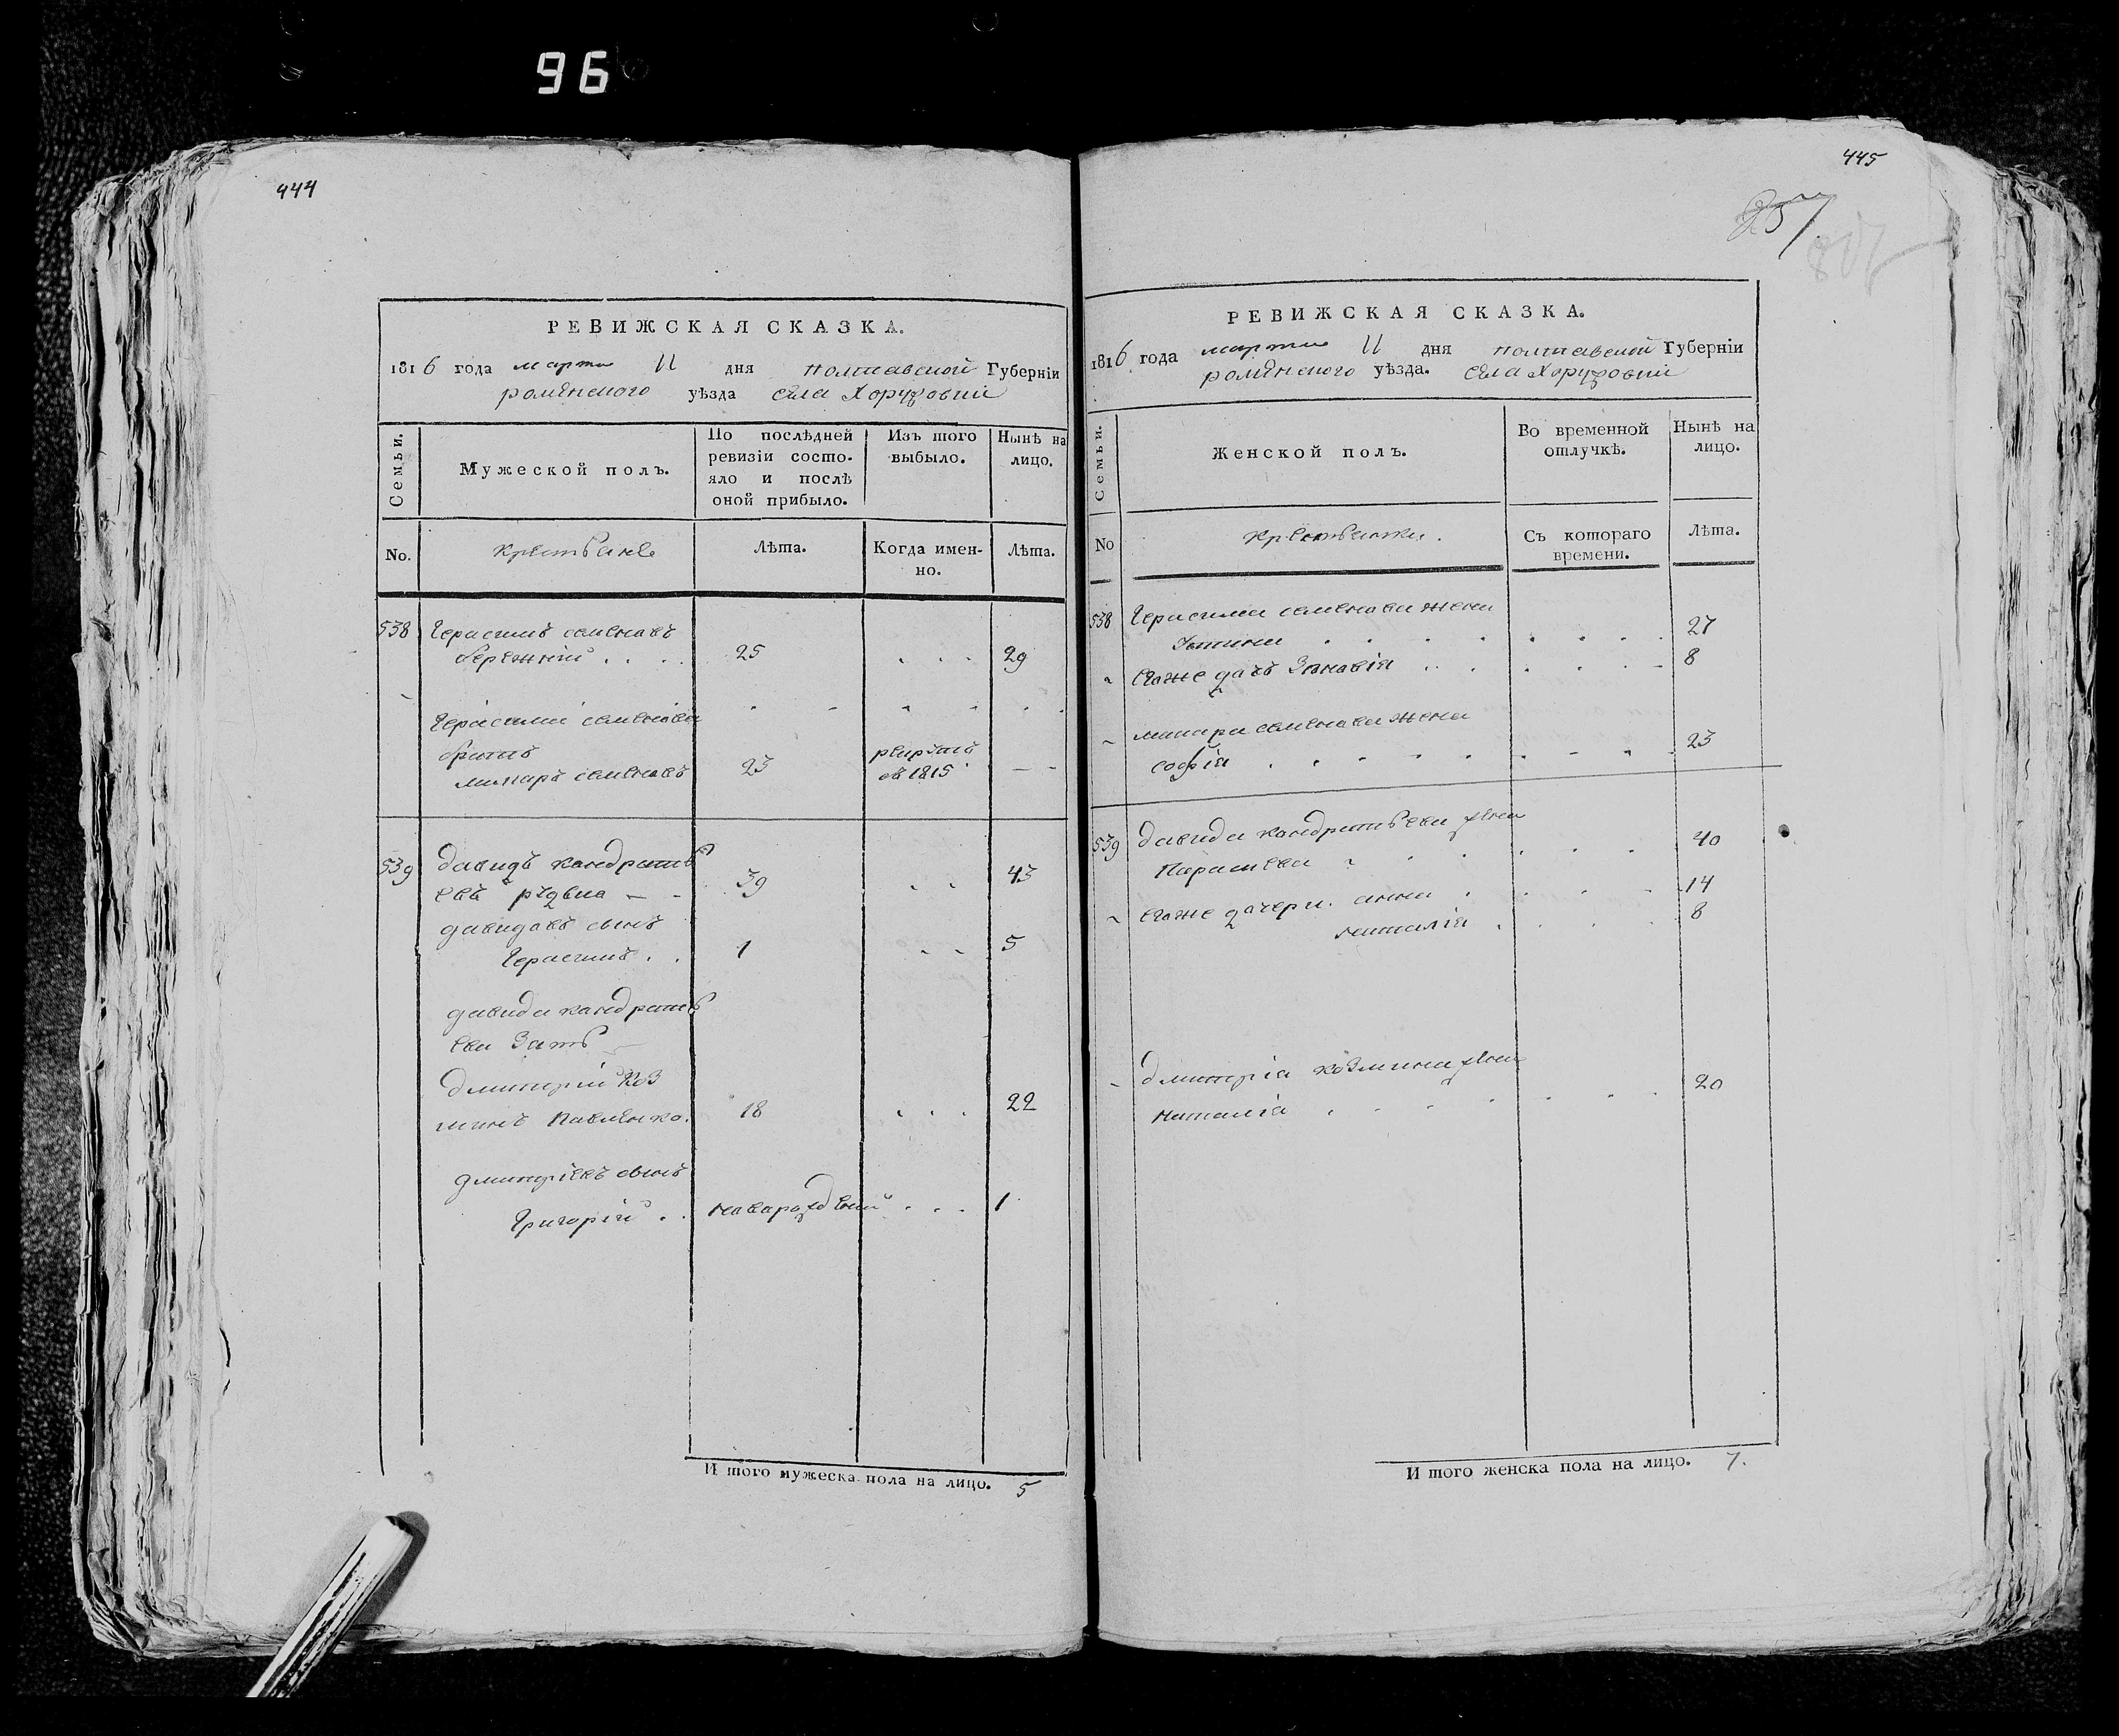 96
444
РЕВИЖСКАЯ СКАЗКА.
1816 года марта 11 дня полтавской Губерніи
роменского уѣзда села Хоружовки
Семьи.
Мужеской полъ.
По послѣдней ревизіи состояло и послѣ оной прибыло.
Изъ того выбыло.
Нынѣ на лицо.
No.
крестьяне
Лѣта.
Когда именно.
Лѣта.
538 Герасимъ семеновъ
бережній . . . . 25 . . . 29
Герасима семенова
братъ
макаръ семеновъ 23 рекрутъ въ 1815 — —
539 давидъ кондрать
евъ редька — - 39 . . 43
давидовъ сынъ
Герасимъ . . 1 . . 5
давида кондрать
ева Зять
дмитрій Коз
минъ Павленко. 18 . . . 22
дмитріевъ сынъ
Григорій . . новорожденій . . . 1
И того мужеска пола на лицо. 5
445
257
РЕВИЖСКАЯ СКАЗКА.
1816 года марта 11 дня полтавской Губерніи
роменского уѣзда. села Хоружовки
Семьи.
Женской полъ.
Во временной отлучкѣ.
Нынѣ на лицо.
No
крестьянки.
Съ котораго времени.
Лѣта.
538 Герасима семенова жена
Устина . . . . . . . . 27
его же дочь Зиновія . . . . . 8
макара семенова жена
софія . . . . . . . . 23
539 давида кондратьева жена
Параскева . . . . . . 40
его же дочери. анна . . . 14
наталія . . . . 8
дмитрія козмина жена
наталія . . . . . . . 20
И того женска пола на лицо. 7.